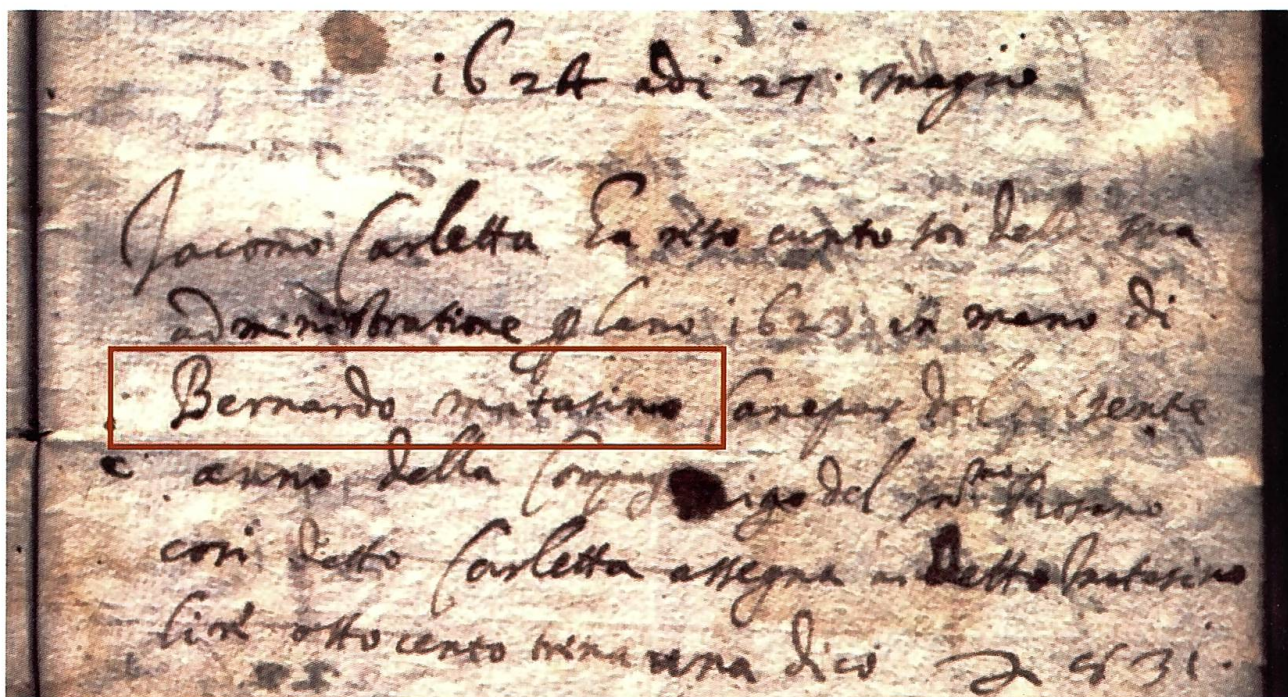 1624 adi 27 magio
Jacomo Carletta Ha reso cunto soi della sua
administratione p lano 1623 in mano di
Bernardo matasino Canepar del p sente
anno della Compag del Rosario
cosi detto Carletta assegna a detto matasino
lire otto cento trenta una dico 831